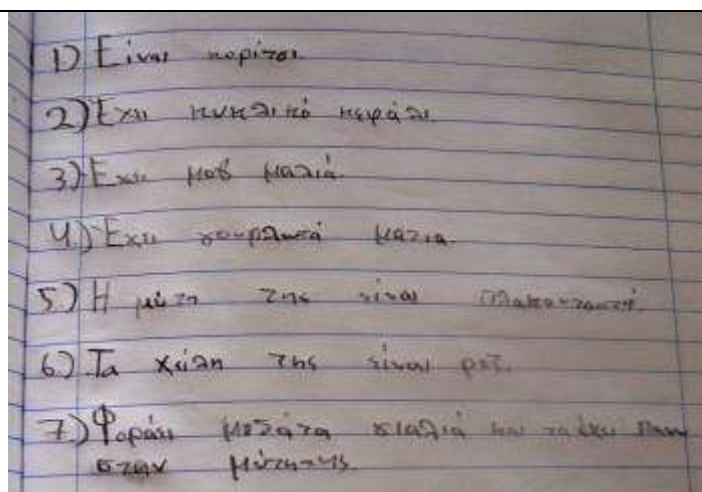 1) Είναι κορίτσι.
2) Έχει κυκλικό κεφάλι.
3) Έχει μοβ μαλιά.
4.) Έχει γουρλωτά μάτια.
5) Η μύτη της είναι πλακουτσωτή.
6) Τα χείλη της είναι ροζ.
7.) Φοράει μεγάτα γιαλιά και τα έχει πανω
στην μύτη της.